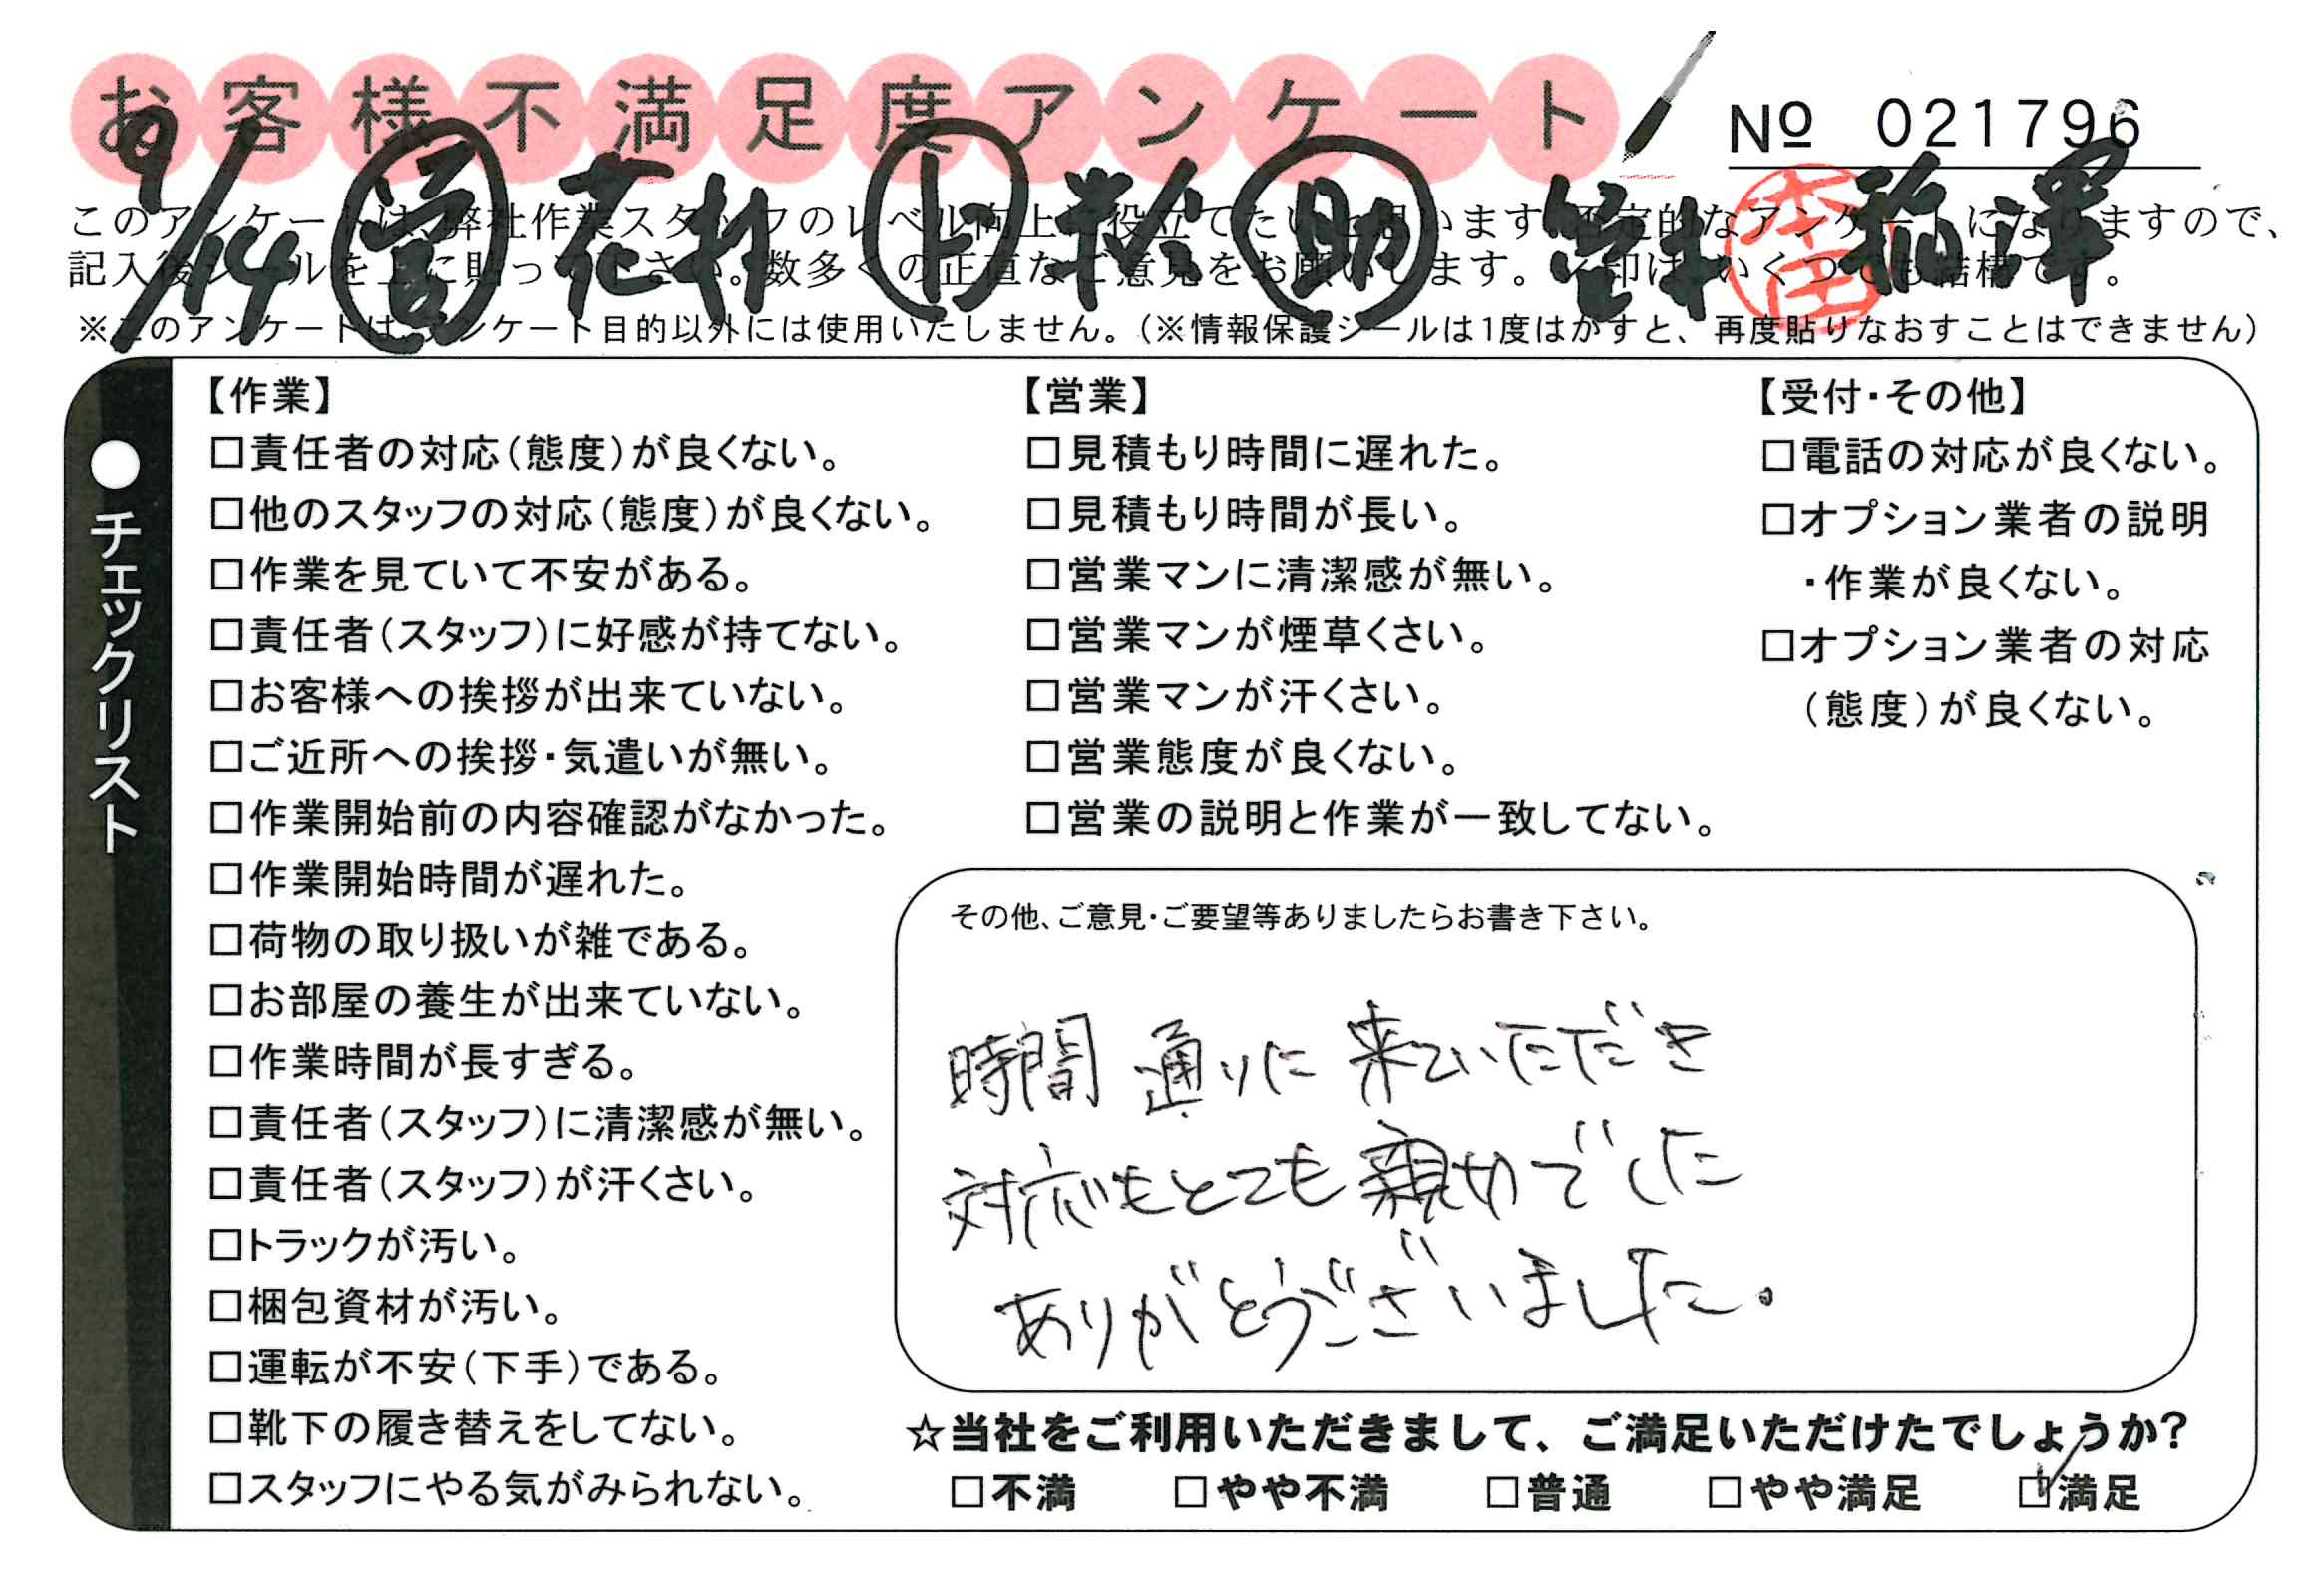 お客様不満足度アンケート
№ 021796
9/14 営 花村 ト 助 本田 稲澤
このアンケートは、弊社作業スタッフのレベル向上に役立てたいと思います。否定的なアンケートになりますので、
記入後シールを上に貼って下さい。数多くの正直なご意見をお願いします。レ印は、いくつでも結構です。
※このアンケートは、アンケート目的以外には使用いたしません。(※情報保護シールは1度はがすと、再度貼りなおすことはできません)
●チェックリスト
【作業】
□責任者の対応(態度)が良くない。
□他のスタッフの対応(態度)が良くない。
□作業を見ていて不安がある。
□責任者(スタッフ)に好感が持てない。
□お客様への挨拶が出来ていない。
□ご近所への挨拶・気遣いが無い。
□作業開始前の内容確認がなかった。
□作業開始時間が遅れた。
□荷物の取り扱いが雑である。
□お部屋の養生が出来ていない。
□作業時間が長すぎる。
□責任者(スタッフ)に清潔感が無い。
□責任者(スタッフ)が汗くさい。
□トラックが汚い。
□梱包資材が汚い。
□運転が不安(下手)である。
□靴下の履き替えをしてない。
□スタッフにやる気がみられない。
【営業】
□見積もり時間に遅れた。
□見積もり時間が長い。
□営業マンに清潔感が無い。
□営業マンが煙草くさい。
□営業マンが汗くさい。
□営業態度が良くない。
□営業の説明と作業が一致してない。
【受付・その他】
□電話の対応が良くない。
□オプション業者の説明
・作業が良くない。
□オプション業者の対応
(態度)が良くない。
その他、ご意見・ご要望等ありましたらお書き下さい。
時間通りに来ていただき
対応もとても親切でした
ありがとうございました。
☆当社をご利用いただきまして、ご満足いただけたでしょうか?
□不満 □やや不満 □普通 □やや満足 ☑満足